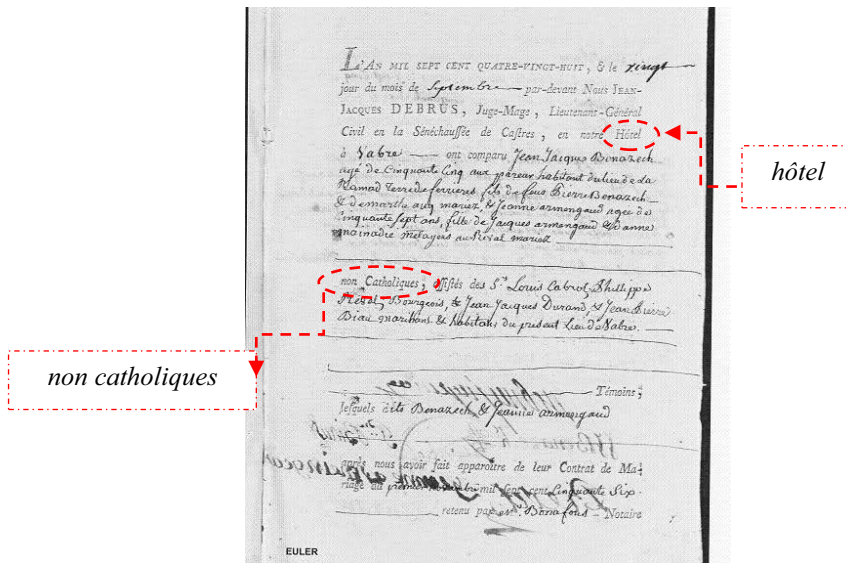 L'AN MIL SEPT CENT QUATRE-VINGT-HUIT, & le vingt
jour du mois de Septembre par-devant Nous JEAN-
JACQUES DEBRUS, Juge-Mage, Lieutenant-Général
Civil en la Sénéchauſſée de Caſtres, en notre Hôtel
hôtel
à Vabre ont comparu Jean Jacques Bonazech
agé de Cinquante Cinq aux pareux habitant du lieu de La
Ramad Terre de ferrieres fils de feus Pierre Bonazech
& de marthe auq mariez, & Jeanne armengaud agée de
Cinquante sept ans, fille de Jacques armengaud & anne
mainadie métayers au mariez
non Catholiques, aſſiſtés des Srs Louis Cabrol, Phillippe
Bourgeois, & Jean Jacques Durand, & Jean Pierre
Biau marchans & habitans du present Lieu de Vabre.
non catholiques
Témoins;
leſquels dits Bonazech & Jeanne armengaud
après nous avoir fait apparoître de leur Contrat de Ma-
riage du premier mil sept cent Cinquante Six
retenu par Me. Bonafous Notaire
EULER